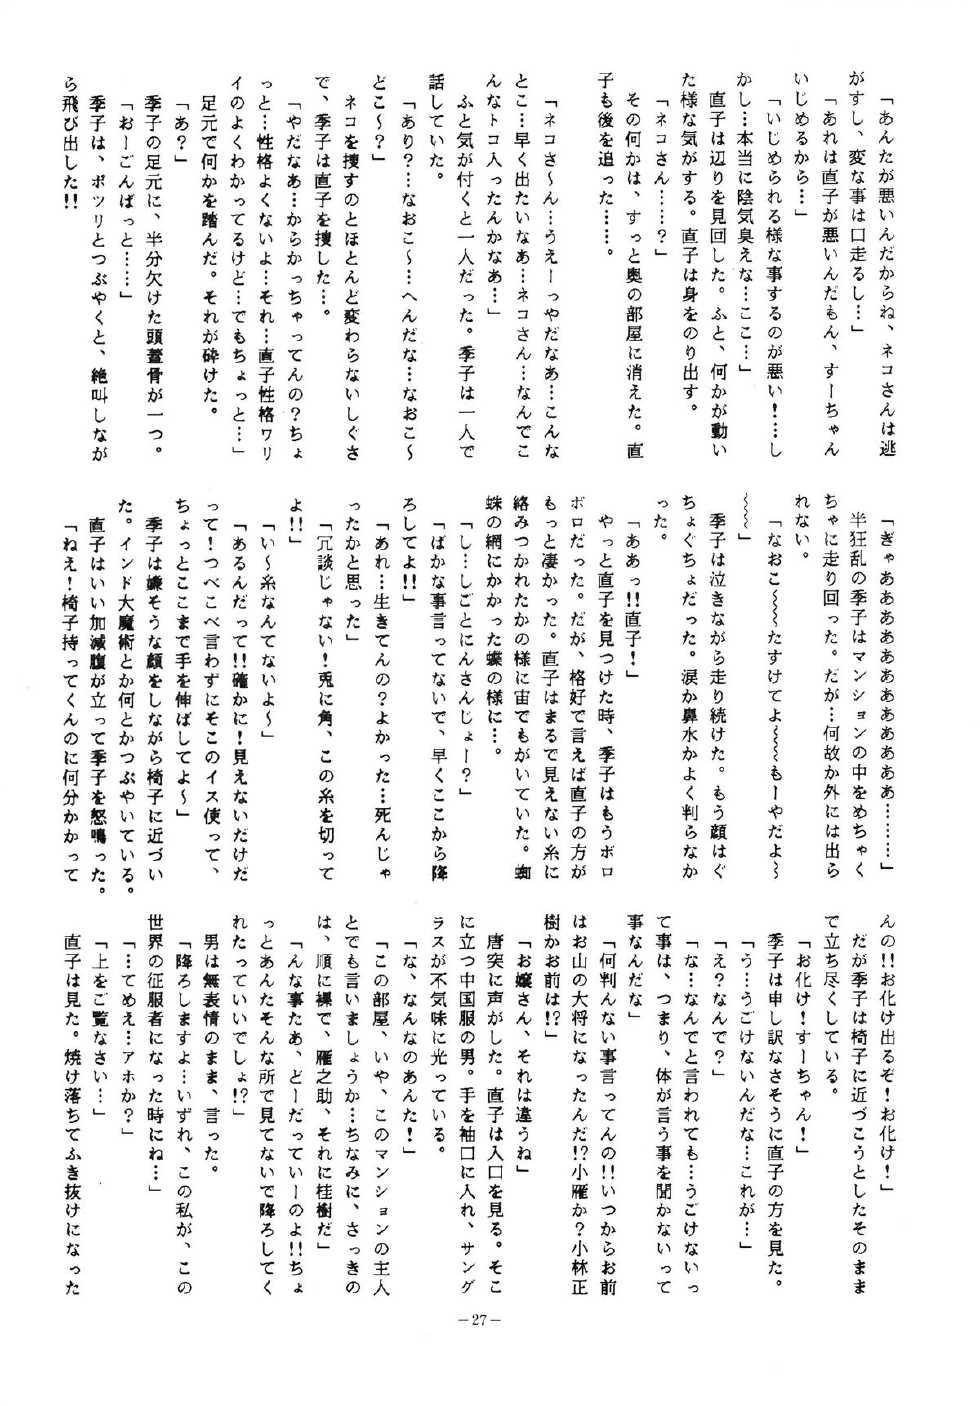 「あんたが悪いんだからね、ネコさんは逃
がすし、変な事は口走るし…」
「あれは直子が悪いんだもん、すーちゃん
いじめるから…」
「いじめられる様な事するのが悪い！…し
かし…本当に陰気臭えな…ここ…」
直子は辺りを見回した。ふと、何かが動い
た様な気がする。直子は身をのり出す。
「ネコさん……？」
その何かは、すっと奥の部屋に消えた。直
子も後を追った……。
「ネコさ〜ん…うえーっやだなあ…こんな
とこ…早く出たいなあ…ネコさん…なんでこ
んなトコ入ったんかなあ…」
ふと気が付くと一人だった。季子は一人で
話していた。
「あり？…なおこ〜…へんだな…なおこ〜
どこ〜？」
ネコを捜すのとほとんど変わらないしぐさ
で、季子は直子を捜した…。
「やだなあ…からかっちゃってんの？ちょ
っと…性格よくないよ…それ…直子性格ワリ
イのよくわかってるけど…でもちょっと…」
足元で何かを踏んだ。それが砕けた。
「あ？」
季子の足元に、半分欠けた頭蓋骨が一つ。
「おーごんばっと……」
季子は、ポツリとつぶやくと、絶叫しなが
ら飛び出した!!
「ぎゃああああああああああああ………」
半狂乱の季子はマンションの中をめちゃく
ちゃに走り回った。だが…何故か外には出ら
れない。
「なおこ〜〜〜たすけてよ〜〜〜もーやだよ〜
〜〜〜」
季子は泣きながら走り続けた。もう顔はぐ
ちょぐちょだった。涙か鼻水かよく判らなか
った。
「ああっ!!直子！」
やっと直子を見つけた時、季子はもうボロ
ボロだった。だが、格好で言えば直子の方が
もっと凄かった。直子はまるで見えない糸に
絡みつかれたかの様に宙でもがいていた。蜘
蛛の網にかかった蝶の様に…。
「し…しごとにんさんじょー？」
「ばかな事言ってないで、早くここから降
ろしてよ!!」
「あれ…生きてんの？よかった…死んじゃ
ったかと思った」
「冗談じゃない！兎に角、この糸を切って
よ!!」
「い〜糸なんてないよ〜」
「あるんだって!!確かに！見えないだけだ
って！つべこべ言わずにそこのイス使って、
ちょっとここまで手を伸ばしてよ〜」
季子は嫌そうな顔をしながら椅子に近づい
た。インド大魔術とか何とかつぶやいている。
直子はいい加減腹が立って季子を怒鳴った。
「ねえ！椅子持ってくんのに何分かかって
んの!!お化け出るぞ！お化け！」
だが季子は椅子に近づこうとしたそのまま
で立ち尽くしている。
「お化け！すーちゃん！」
季子は申し訳なさそうに直子の方を見た。
「う…うごけないんだな…これが…」
「え？なんで？」
「な…なんでと言われても…うごけないっ
て事は、つまり、体が言う事を聞かないって
事なんだな」
「何判んない事言ってんの!!いつからお前
はお山の大将になったんだ!?小雁か？小林正
樹かお前は!?」
「お嬢さん、それは違うね」
唐突に声がした。直子は入口を見る。そこ
に立つ中国服の男。手を袖口に入れ、サング
ラスが不気味に光っている。
「な、なんなのあんた！」
「この部屋、いや、このマンションの主人
とでも言いましょうか…ちなみに、さっきの
は、順に裸で、雁之助、それに桂樹だ」
「んな事たあ、どーだっていーのよ!!ちょ
っとあんたそんな所で見てないで降ろしてく
れたっていいでしょ!?」
男は無表情のまま、言った。
「降ろしますよ…いずれ、この私が、この
世界の征服者になった時にね…」
「…てめえ…アホか？」
「上をご覧なさい…」
直子は見た。焼け落ちてふき抜けになった
－27－